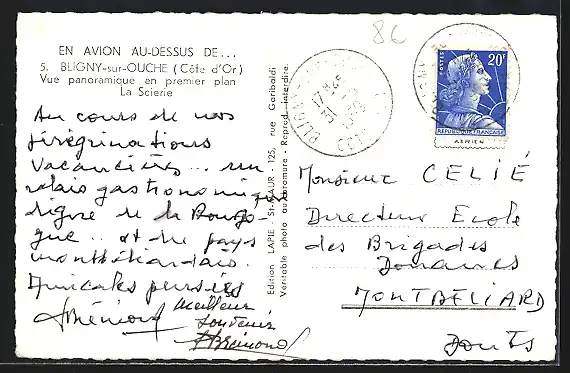 EN AVION AU-DESSUS DE...
5. BLIGNY-sur-OUCHE (Côte d'Or)
Vue panoramique en premier plan
La Scierie
Au cours de nos
pérégrinations
vacancières... un
relais gastronomique
digne de la Bourgo-
gne... et du pays
montbéliardais.
Amicales pensées
ABrémond
Meilleur
souvenir
ABrémond
Edition LAPIE, St-MAUR - 125, rue Garibaldi
Véritable photo au bromure - Reprod. interdite.
8C
17H45
31-
CÔTE
POSTES
20F
REPUBLIQUE FRANÇAISE
AÉRIEN
Monsieur CELIÉ
Directeur Ecole
des Brigades
Douanes
MONTBELIARD
Doubs